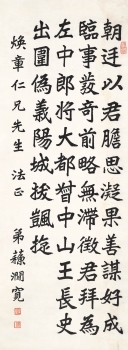 朝廷以君膽思凝果善謀好成
臨事發奇前略無滯徵君拜為
左中郎將大都督中山王長史
出圍偽義陽城拔颽旋
煥章仁兄先生 法正
弟蘇澗寬